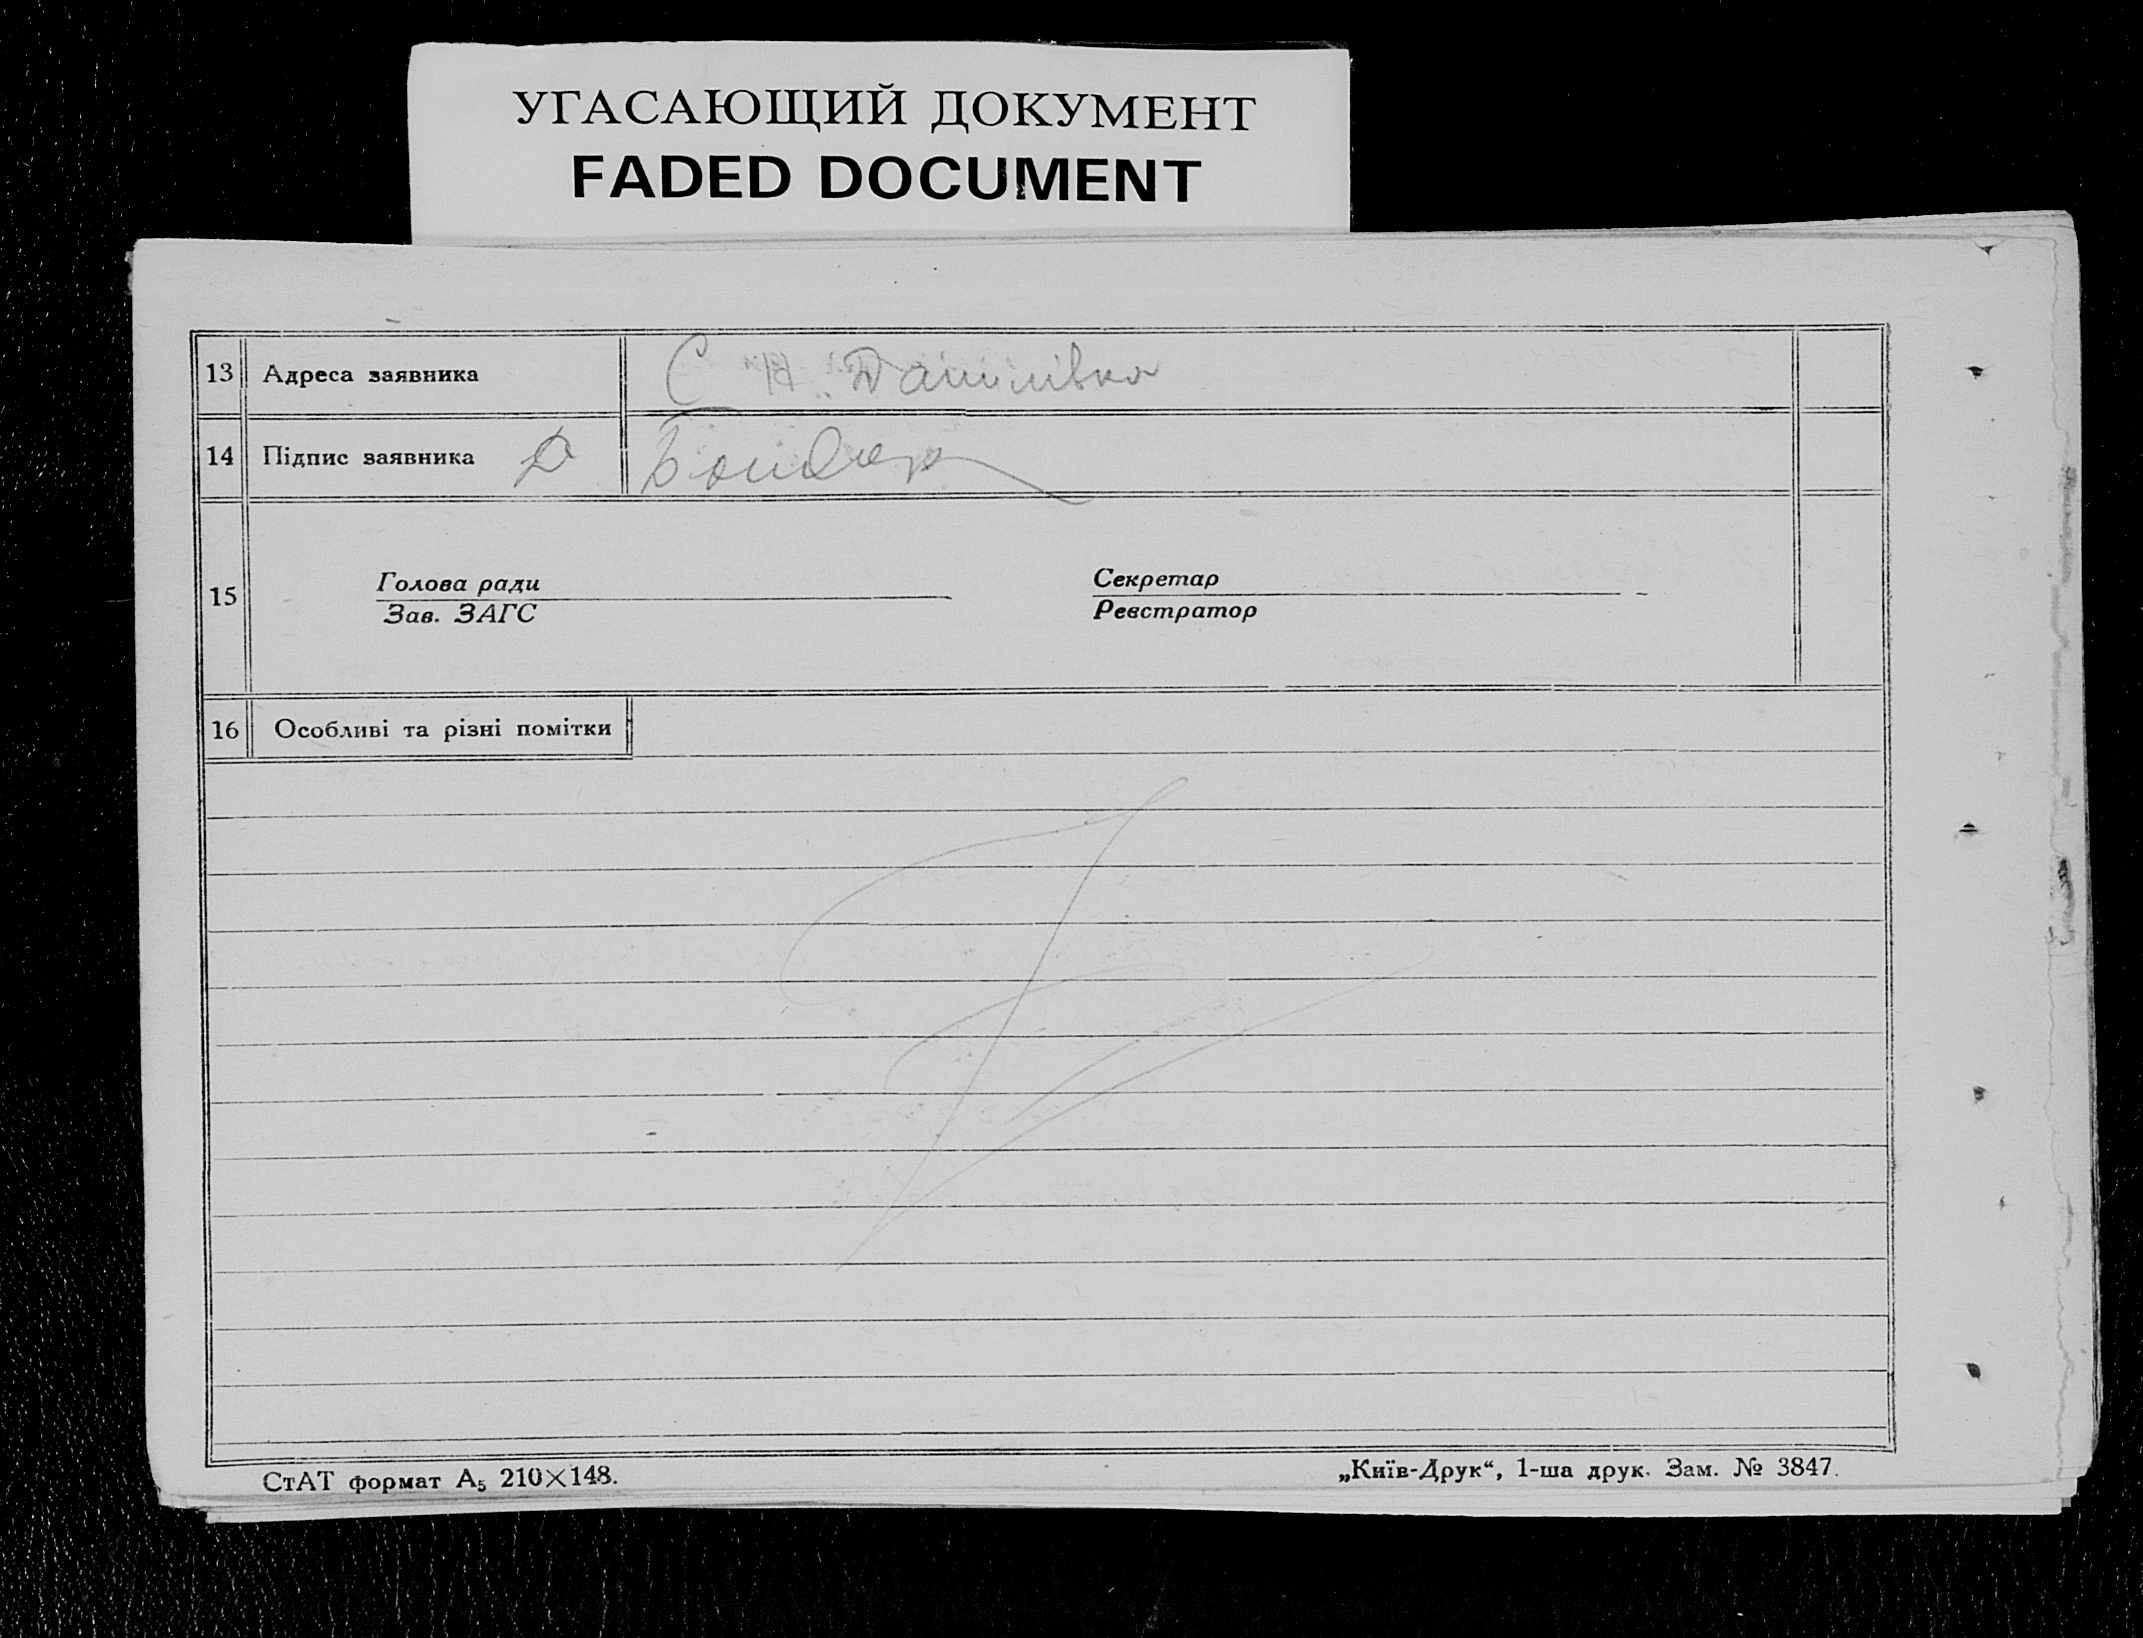 УГАСАЮЩИЙ ДОКУМЕНТ
FADED DOCUMENT
13 Адреса заявника С Н. Данилівка
14 Підпис заявника Д Бондар
15 Голова ради Секретар
Зав. ЗАГС Реєстратор
16 Особливі та різні помітки
СтАТ формат А₅ 210×148. „Київ-Друк“, 1-ша друк. Зам. № 3847.